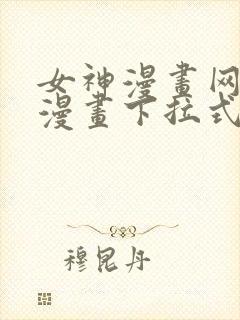 女神漫畫网
漫畫下拉式
穆昆丹